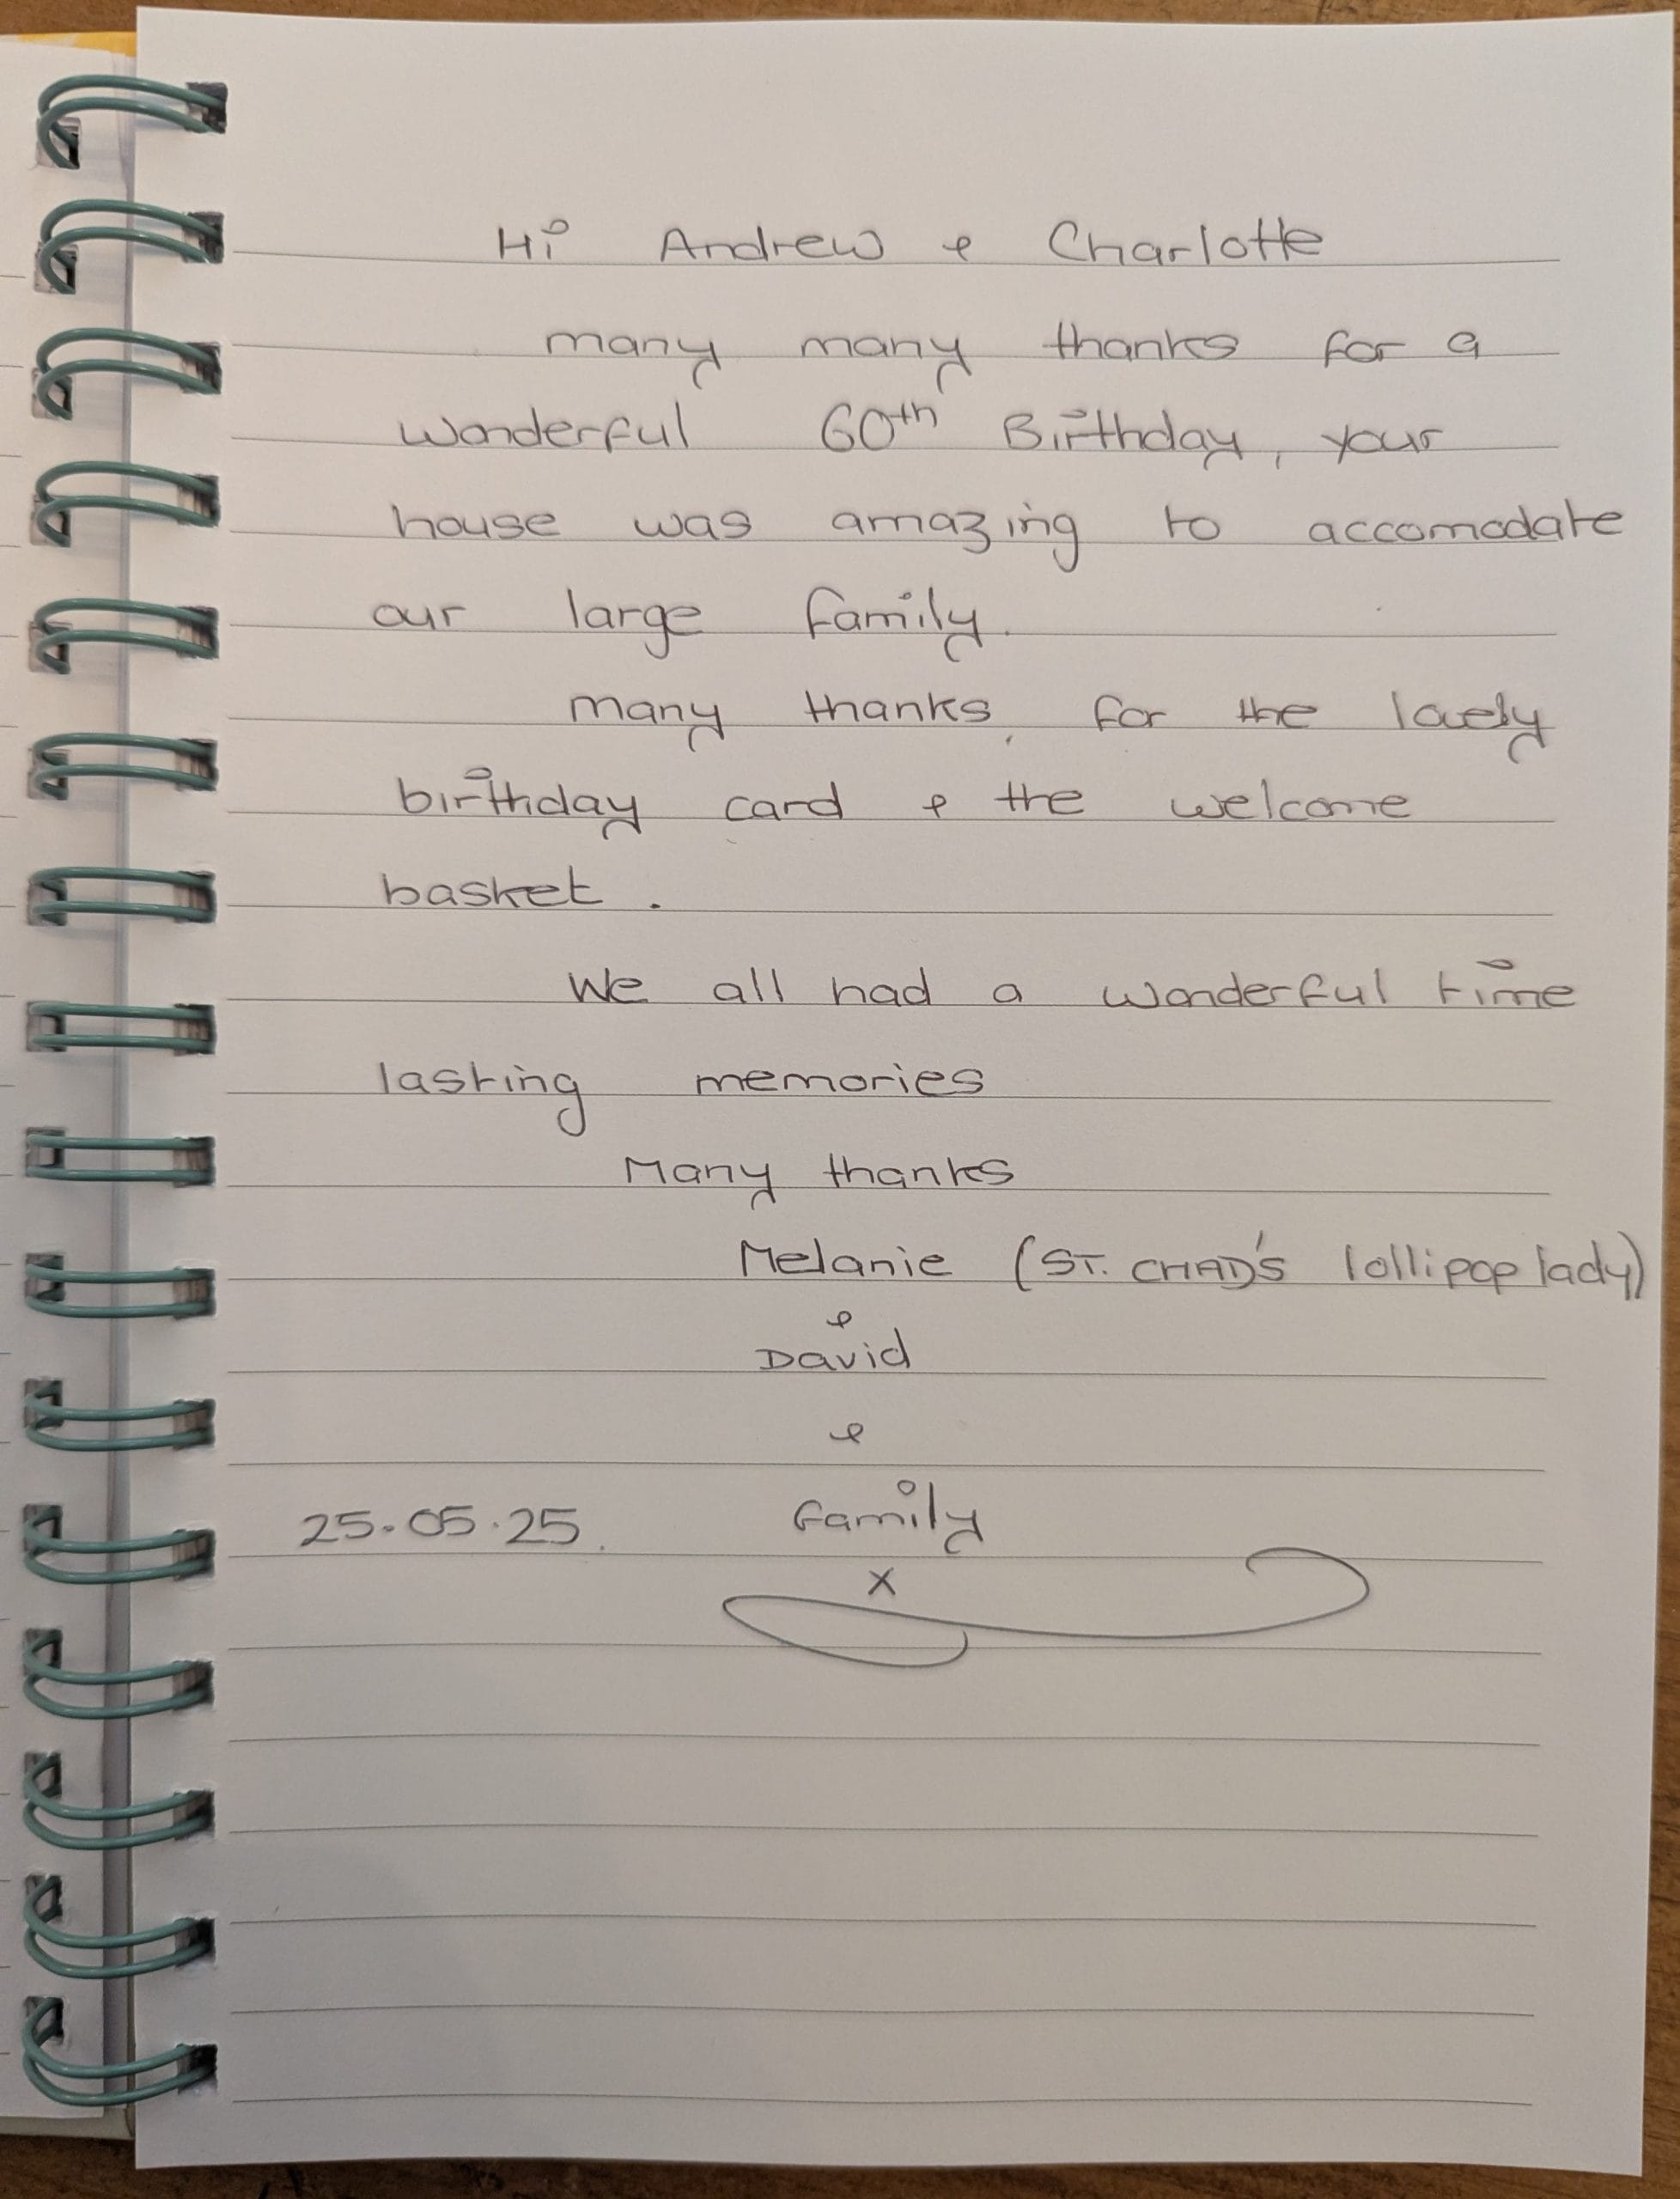 Hi Andrew & Charlotte
many many thanks for a
wonderful 60th Birthday, your
house was amazing to accomodate
our large family.
many thanks for the lovely
birthday card & the welcome
basket.
We all had a wonderful time
lasting memories
Many thanks
Melanie (ST. CHAD'S lollipop lady)
&
David
&
25.05.25. family
x